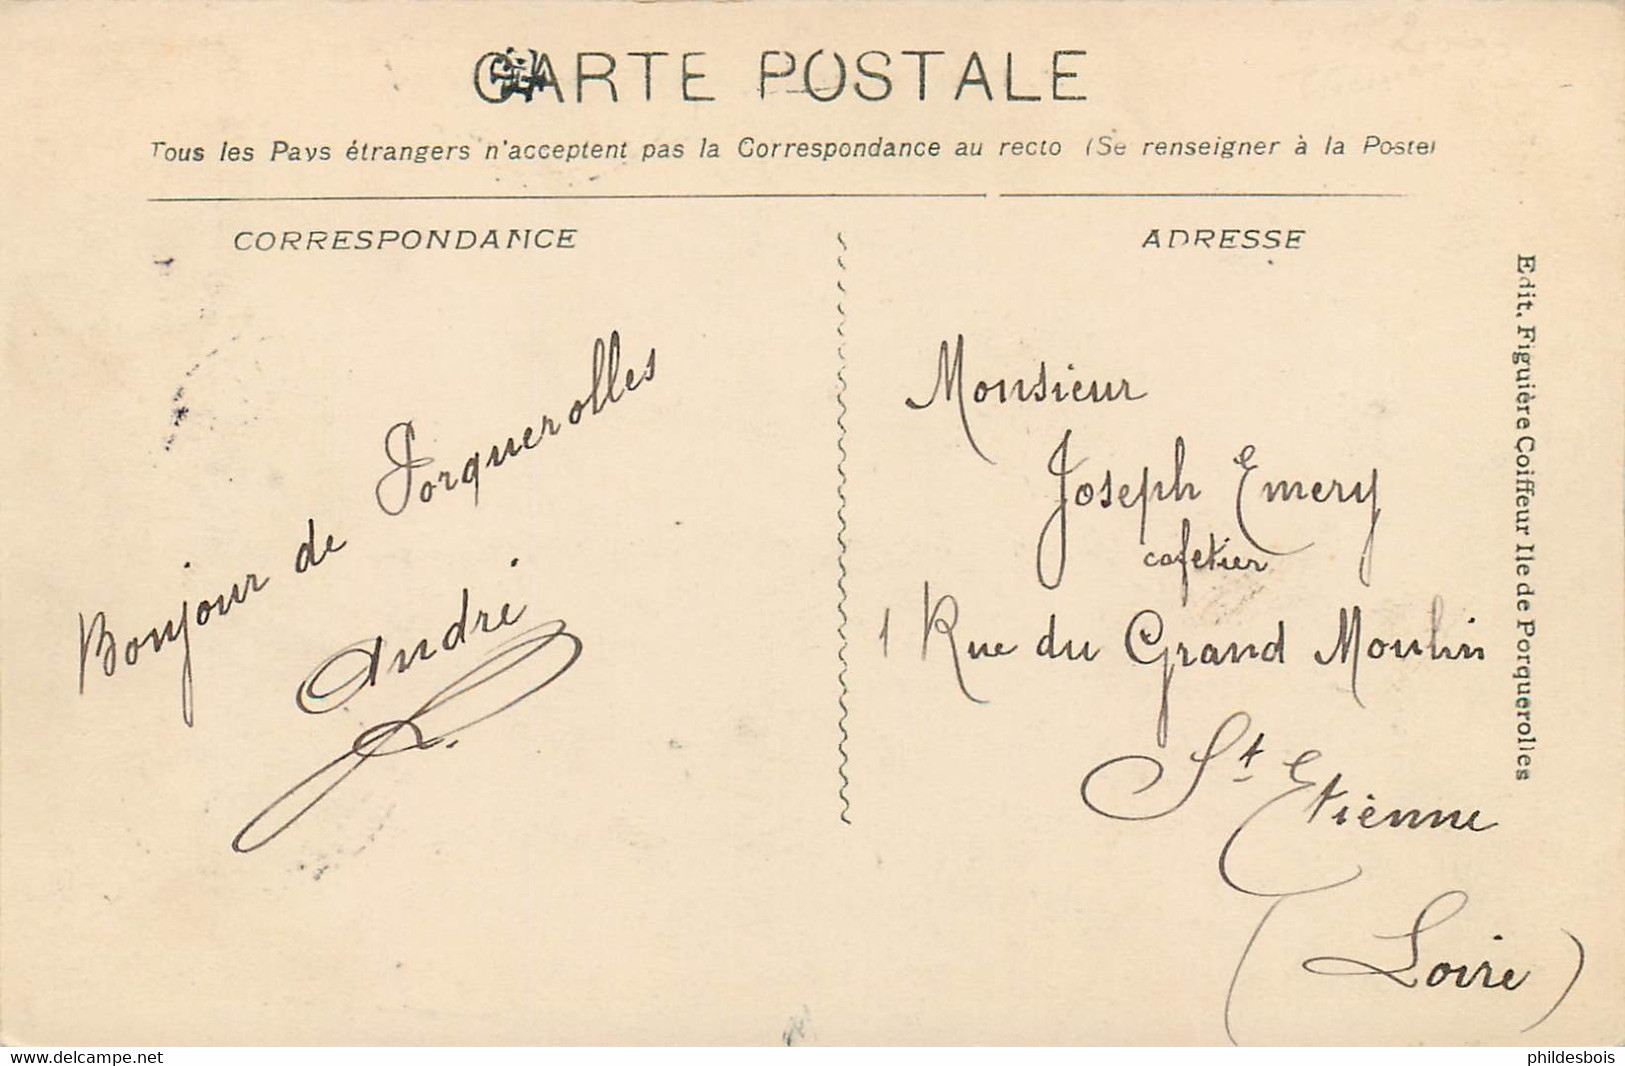 CARTE POSTALE
Tous les Pays étrangers n'acceptent pas la Correspondance au recto (Se renseigner à la Poste)
CORRESPONDANCE
ADRESSE
Bonjour de Porquerolles
André
Monsieur
Joseph Emery
cafetier
1 Rue du Grand Moulin
St Etienne
(Loire)
Edit. Figuière Coiffeur Ile de Porquerolles
www.delcampe.net
phildesbois